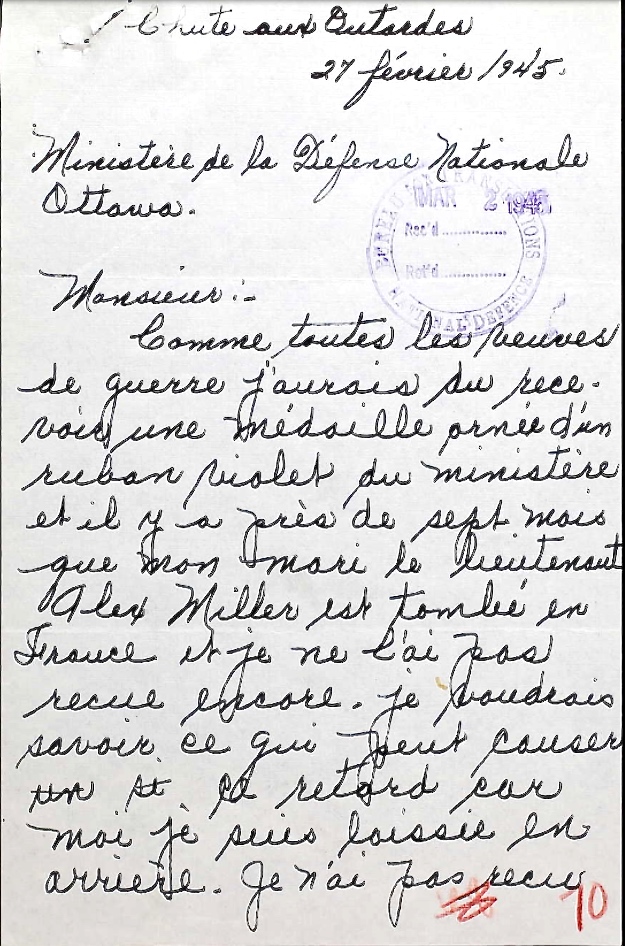 Chute aux Outardes
27 février 1945.
Ministère de la Défense Nationale
Ottawa.
BUREAU TRANSLATIONS
MAR 2 1945
Rec'd ..............
Ret'd ..............
NATIONAL DEFENCE
Monsieur :-
Comme toutes les veuves
de guerre j'aurais du rece-
voir une médaille ornée d'un
ruban violet du ministère
et il y a près de sept mois
que mon mari le lieutenant
Alex Miller est tombé en
France et je ne l'ai pas
recue encore. je voudrais
savoir ce qui peut causer
un st ce retard car
moi je suis laissée en
arrière. Je n'ai pas recu
10